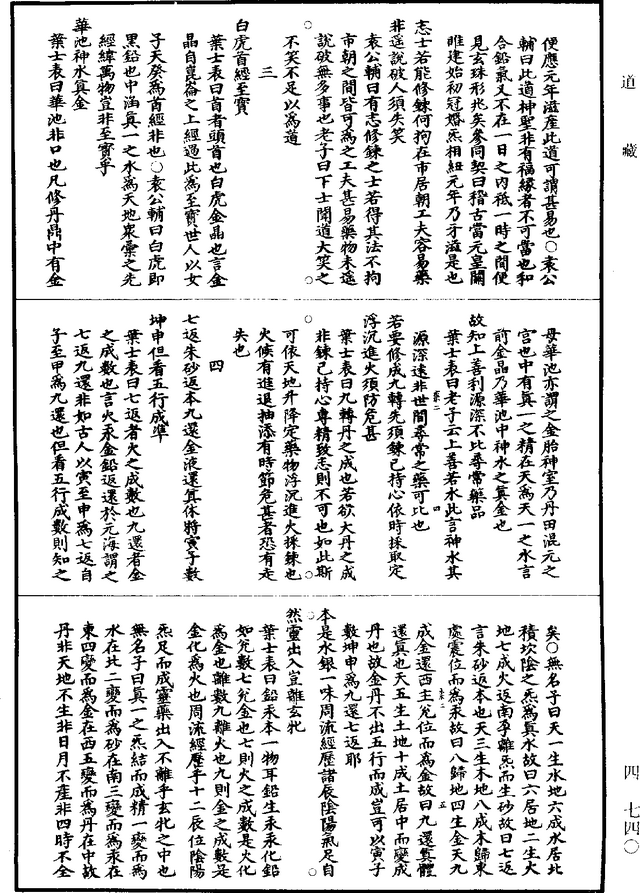 道藏
四 七四〇
便應元年滋產此道可謂甚易也〇袁公
輔曰此道神聖非有福緣者不可當也和
合鉛氣又不在一日之内秪一時之間便
見玄珠形兆矣參同契曰稽古當元皇關
雎建始初冠婚炁相紐元年乃牙滋是也
志士若能修鍊何拘在市居朝工夫容易藥
非遥說破人須失笑
袁公輔曰有志修鍊之士若得其法不拘
市朝之間皆可為之工夫甚易藥物未遥
說破無多事也老子曰下士聞道大笑之
不笑不足以為道
三
白虎首經至寶
葉士表曰首者頭首也白虎金晶也言金
晶自崑崙之上經過此為至寶世人以女
子天癸為首經非也〇袁公輔曰白虎即
黑鉛也中涵真一之水為天地衆彙之先
經緯萬物豈非至寳乎
華池神水真金
葉士表曰華池非口也凡修丹鼎中有金
母華池亦謂之金胎神室乃丹田混元之
宫也中有真一之精在天為天一之水言
前金晶乃華池中神水之真金也
故知上善利源深不比尋常藥品
葉士表曰老子云上善若水此言神水其
源深遠非世間尋常之藥可比也
若要修成九轉先須鍊己持心依時採取定
浮沉進火須防危甚
葉士表曰九轉丹之成也若欲大丹之成
非鍊己持心專精致志則不可也如此斯
可依天地升降定藥物浮沉進火採鍊也
火候有進退抽添有時節危甚者恐有走
失也
四
七返朱砂返本九還金液還真休將寅子數
坤申但看五行成準
葉士表曰七返者火之成數也九還者金
之成數也言火汞金鉛返還於元海謂之
七返九還非如古人以寅至申為七返自
子至甲為九還也但看五行成數則知之
矣〇無名子曰天一生水地六成水居北
積坎陰之炁為真水故曰六居地二生火
地七成火返南孕離炁而生砂故曰七返
言朱砂返本也天三生木地八成木歸東
處震位而為汞故曰八歸地四生金天九
成金還西主兊位而為金故曰九還真體
還真也天五生土地十成土居中而變成
丹也故金丹不出五行而成豈可以寅子
數坤申為九還七返耶
本是水銀一味周流經歷諸辰陰陽氣足自
然靈出入豈離玄牝
葉士表曰鉛汞本一物耳鉛生汞汞化鉛
如兊數七兊金也七則火之成數是火化
為金也離數九離火也九則金之成數是
金化為火也周流經歷乎十二辰位陰陽
炁足而成靈藥出入不離乎玄牝之中也
無名子曰真一之炁結而成精一變而為
水在北二變而為砂在南三變而為汞在
東四變而為金在西五變而為丹在中故
丹非天地不生非日月不產非四時不全